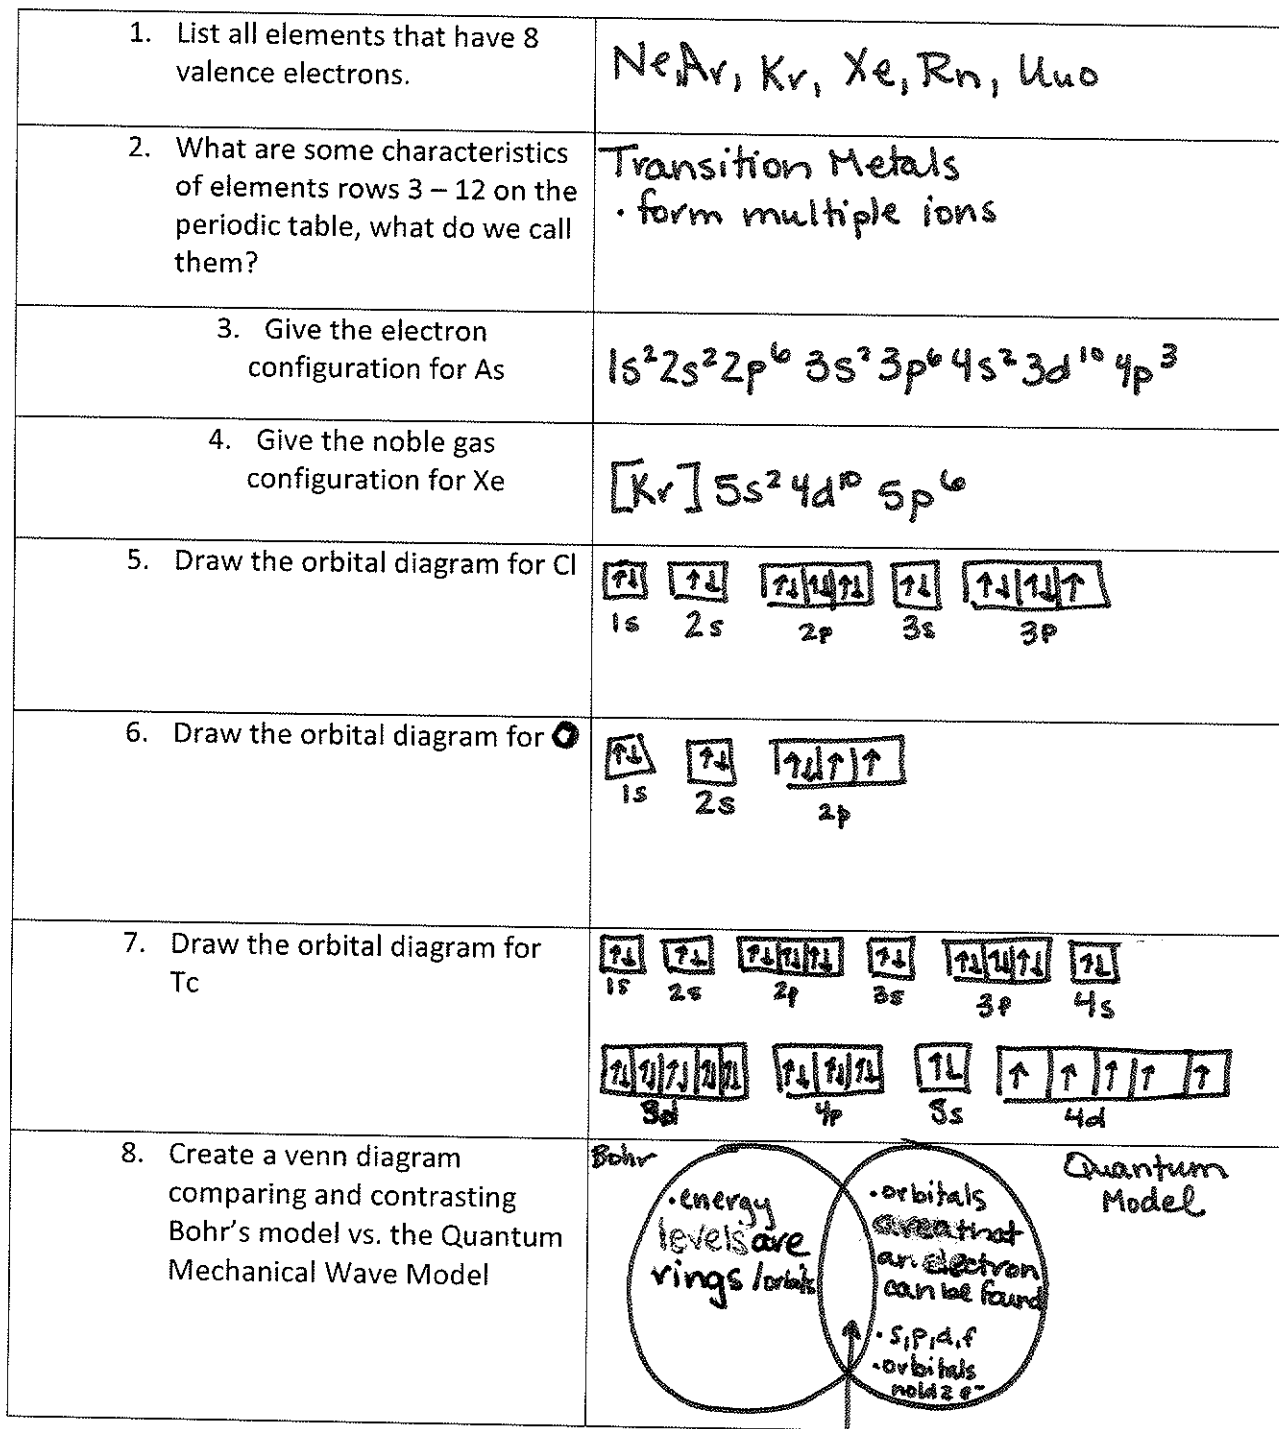 1. List all elements that have 8
valence electrons.
Ne, Ar, Kr, Xe, Rn, Uuo
2. What are some characteristics
of elements rows 3 – 12 on the
periodic table, what do we call
them?
Transition Metals
· form multiple ions
3. Give the electron
configuration for As
1s²2s²2p⁶ 3s²3p⁶4s²3d¹⁰4p³
4. Give the noble gas
configuration for Xe
[Kr] 5s²4d¹⁰ 5p⁶
5. Draw the orbital diagram for Cl
↑↓ ↑↓ ↑↓|↑↓|↑↓ ↑↓ ↑↓|↑↓|↑
1s 2s 2p 3s 3p
6. Draw the orbital diagram for O
↑↓ ↑↓ ↑↓|↑|↑
1s 2s 2p
7. Draw the orbital diagram for
Tc
↑↓ ↑↓ ↑↓|↑↓|↑↓ ↑↓ ↑↓|↑↓|↑↓ ↑↓
1s 2s 2p 3s 3p 4s
↑↓|↑↓|↑↓|↑↓|↑↓ ↑↓|↑↓|↑↓ ↑↓ ↑|↑|↑|↑|↑
3d 4p 5s 4d
8. Create a venn diagram
comparing and contrasting
Bohr's model vs. the Quantum
Mechanical Wave Model
Bohr
· energy
levels are
rings/orbits
Quantum
Model
· orbitals
area that
an electron
can be found
· s,p,d,f
· orbitals
hold 2 e⁻